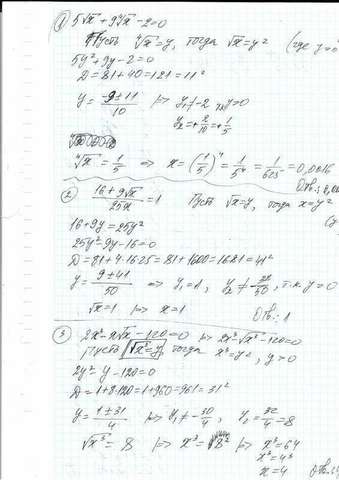 ① 5√x + 9⁴√x - 2 = 0
Пусть ⁴√x = y, тогда √x = y² (где y≥0
5y² + 9y - 2 = 0
D = 81 + 40 = 121 = 11²
y = (-9 ± 11)/10 => y₁ ≠ -2 y≥0
y₂ = 2/10 = 1/5
⁴√x = 1/5 => x = (1/5)⁴ = 1/5⁴ = 1/625 = 0,0016
Отв.: 0,00
② (16 + 9√x)/25x = 1 Пусть √x = y, тогда x = y²
16 + 9y = 25y²
25y² - 9y - 16 = 0
D = 81 + 4·16·25 = 81 + 1600 = 1681 = 41²
y = (9 ± 41)/50 => y₁ = 1, y₂ ≠ -32/50, т.к. y≥0
√x = 1 => x = 1
Отв.: 1
③ 2x³ - x√x - 120 = 0 => 2x³ - √x³ - 120 = 0
Пусть √x³ = y, тогда x³ = y², y ≥ 0
2y² - y - 120 = 0
D = 1 + 8·120 = 1 + 960 = 961 = 31²
y = (1 ± 31)/4 => y₁ ≠ -30/4, y₂ = 32/4 = 8
√x³ = 8 => x³ = 8² => x³ = 64
x³ = 4³
x = 4 Отв.: